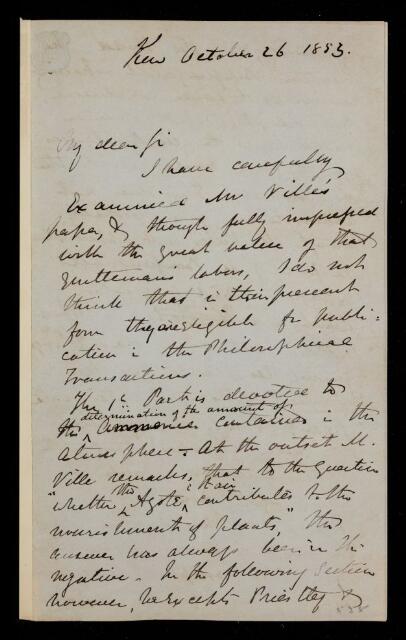 Kew October 26 1853.
My dear Sir
I have carefully
Examined Mr Ville's
paper, & though fully impressed
with the great value of that
gentleman's labors, I do not
think that in their present
form they are eligible for publi-
cation in the Philosophical
Transactions.
The 1st Part is devoted to
determination of the amount of
the Ammonia contained in the
Atmosphere – At the outset M.
Ville remarks, that to the Question
"whether the Azote in air contributes to the
nourishment of plants" the
answer has always been in the
negative. In the following section
however, he excepts Priestley &